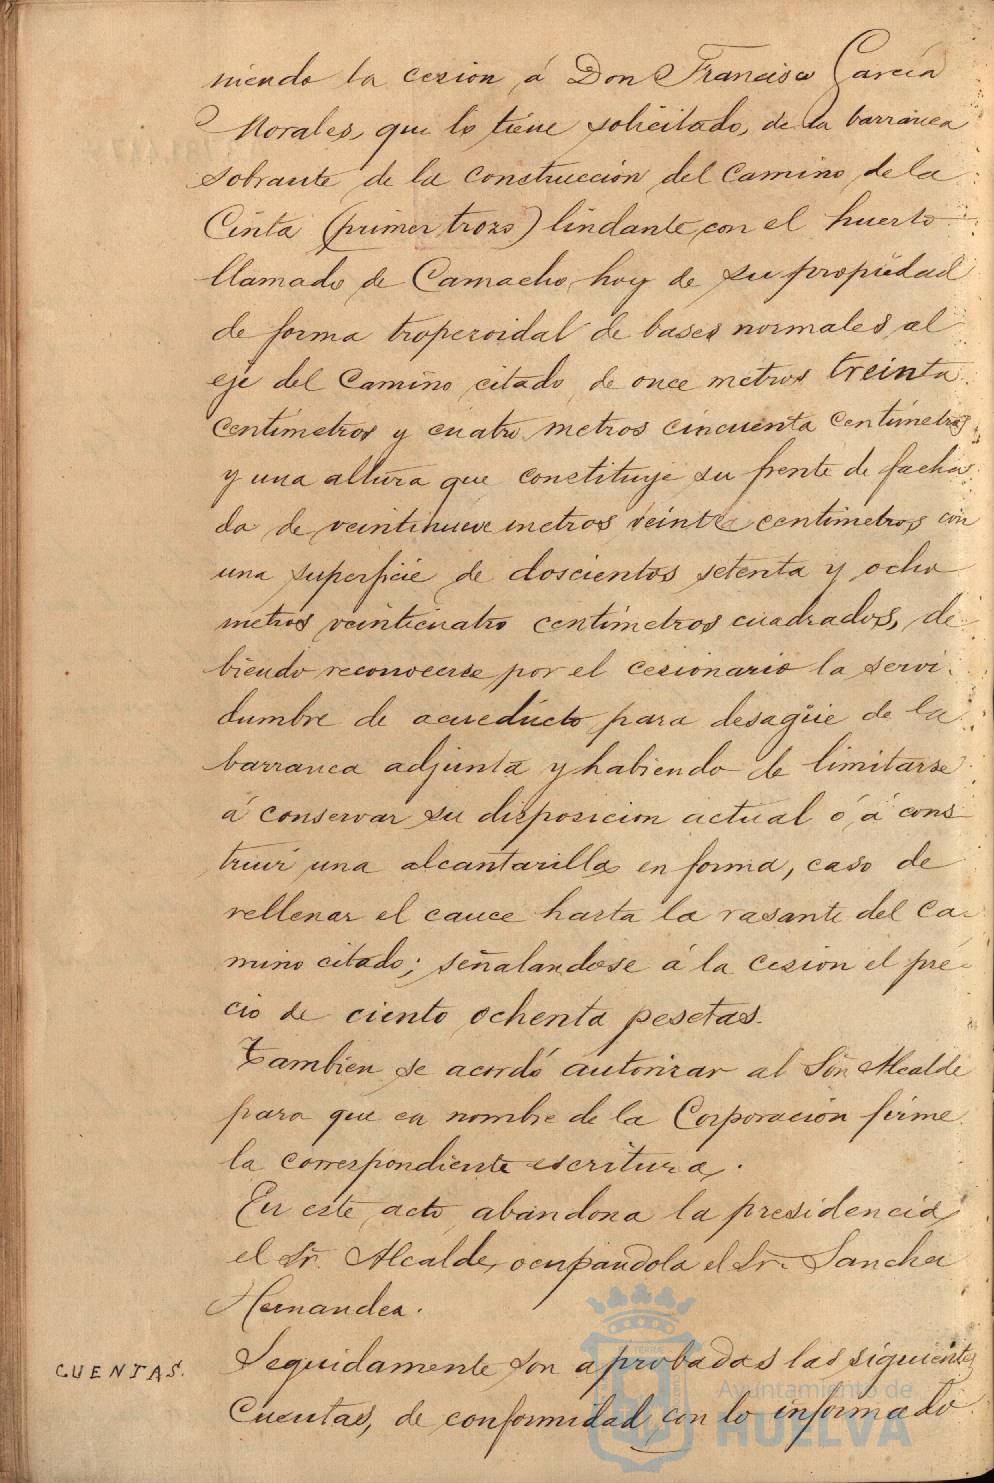 niendo la cesion á Don Francisco García
Morales, que lo tiene solicitado, de la barranca
sobrante de la construccion del camino de la
Cinta (primer trozo) lindante con el huerto
llamado de Camacho, hoy de su propiedad
de forma troperoidal de bases normales al
eje del camino citado, de once metros treinta
centímetros y cuatro metros cincuenta centímetros
y una altura que constituye su frente de facha
da de veintinueve metros veinte centimetros, con
una superficie de doscientos setenta y ocho
metros veinticuatro centímetros cuadrados, de-
biendo reconocerse por el cesionario la servi-
dumbre de acueducto para desagüe de la
barranca adjunta y habiendo de limitarse
á conservar su disposicion actual ó á cons
truir una alcantarilla en forma, caso de
rellenar el cauce hasta la rasante del ca-
mino citado; señalandose á la cesion el pre-
cio de ciento ochenta pesetas.
Tambien se acordó autorizar al Sôr Alcalde
para que en nombre de la Corporacion firme
la correspondiente escritura.
En este acto abandona la presidencia
el Sr. Alcalde, ocupandola el Sr. Sanchez
Hernandez.
CUENTAS.
Seguidamente son aprobadas las siguientes
Cuentas, de conformidad con lo informado
Ayuntamiento de
HUELVA